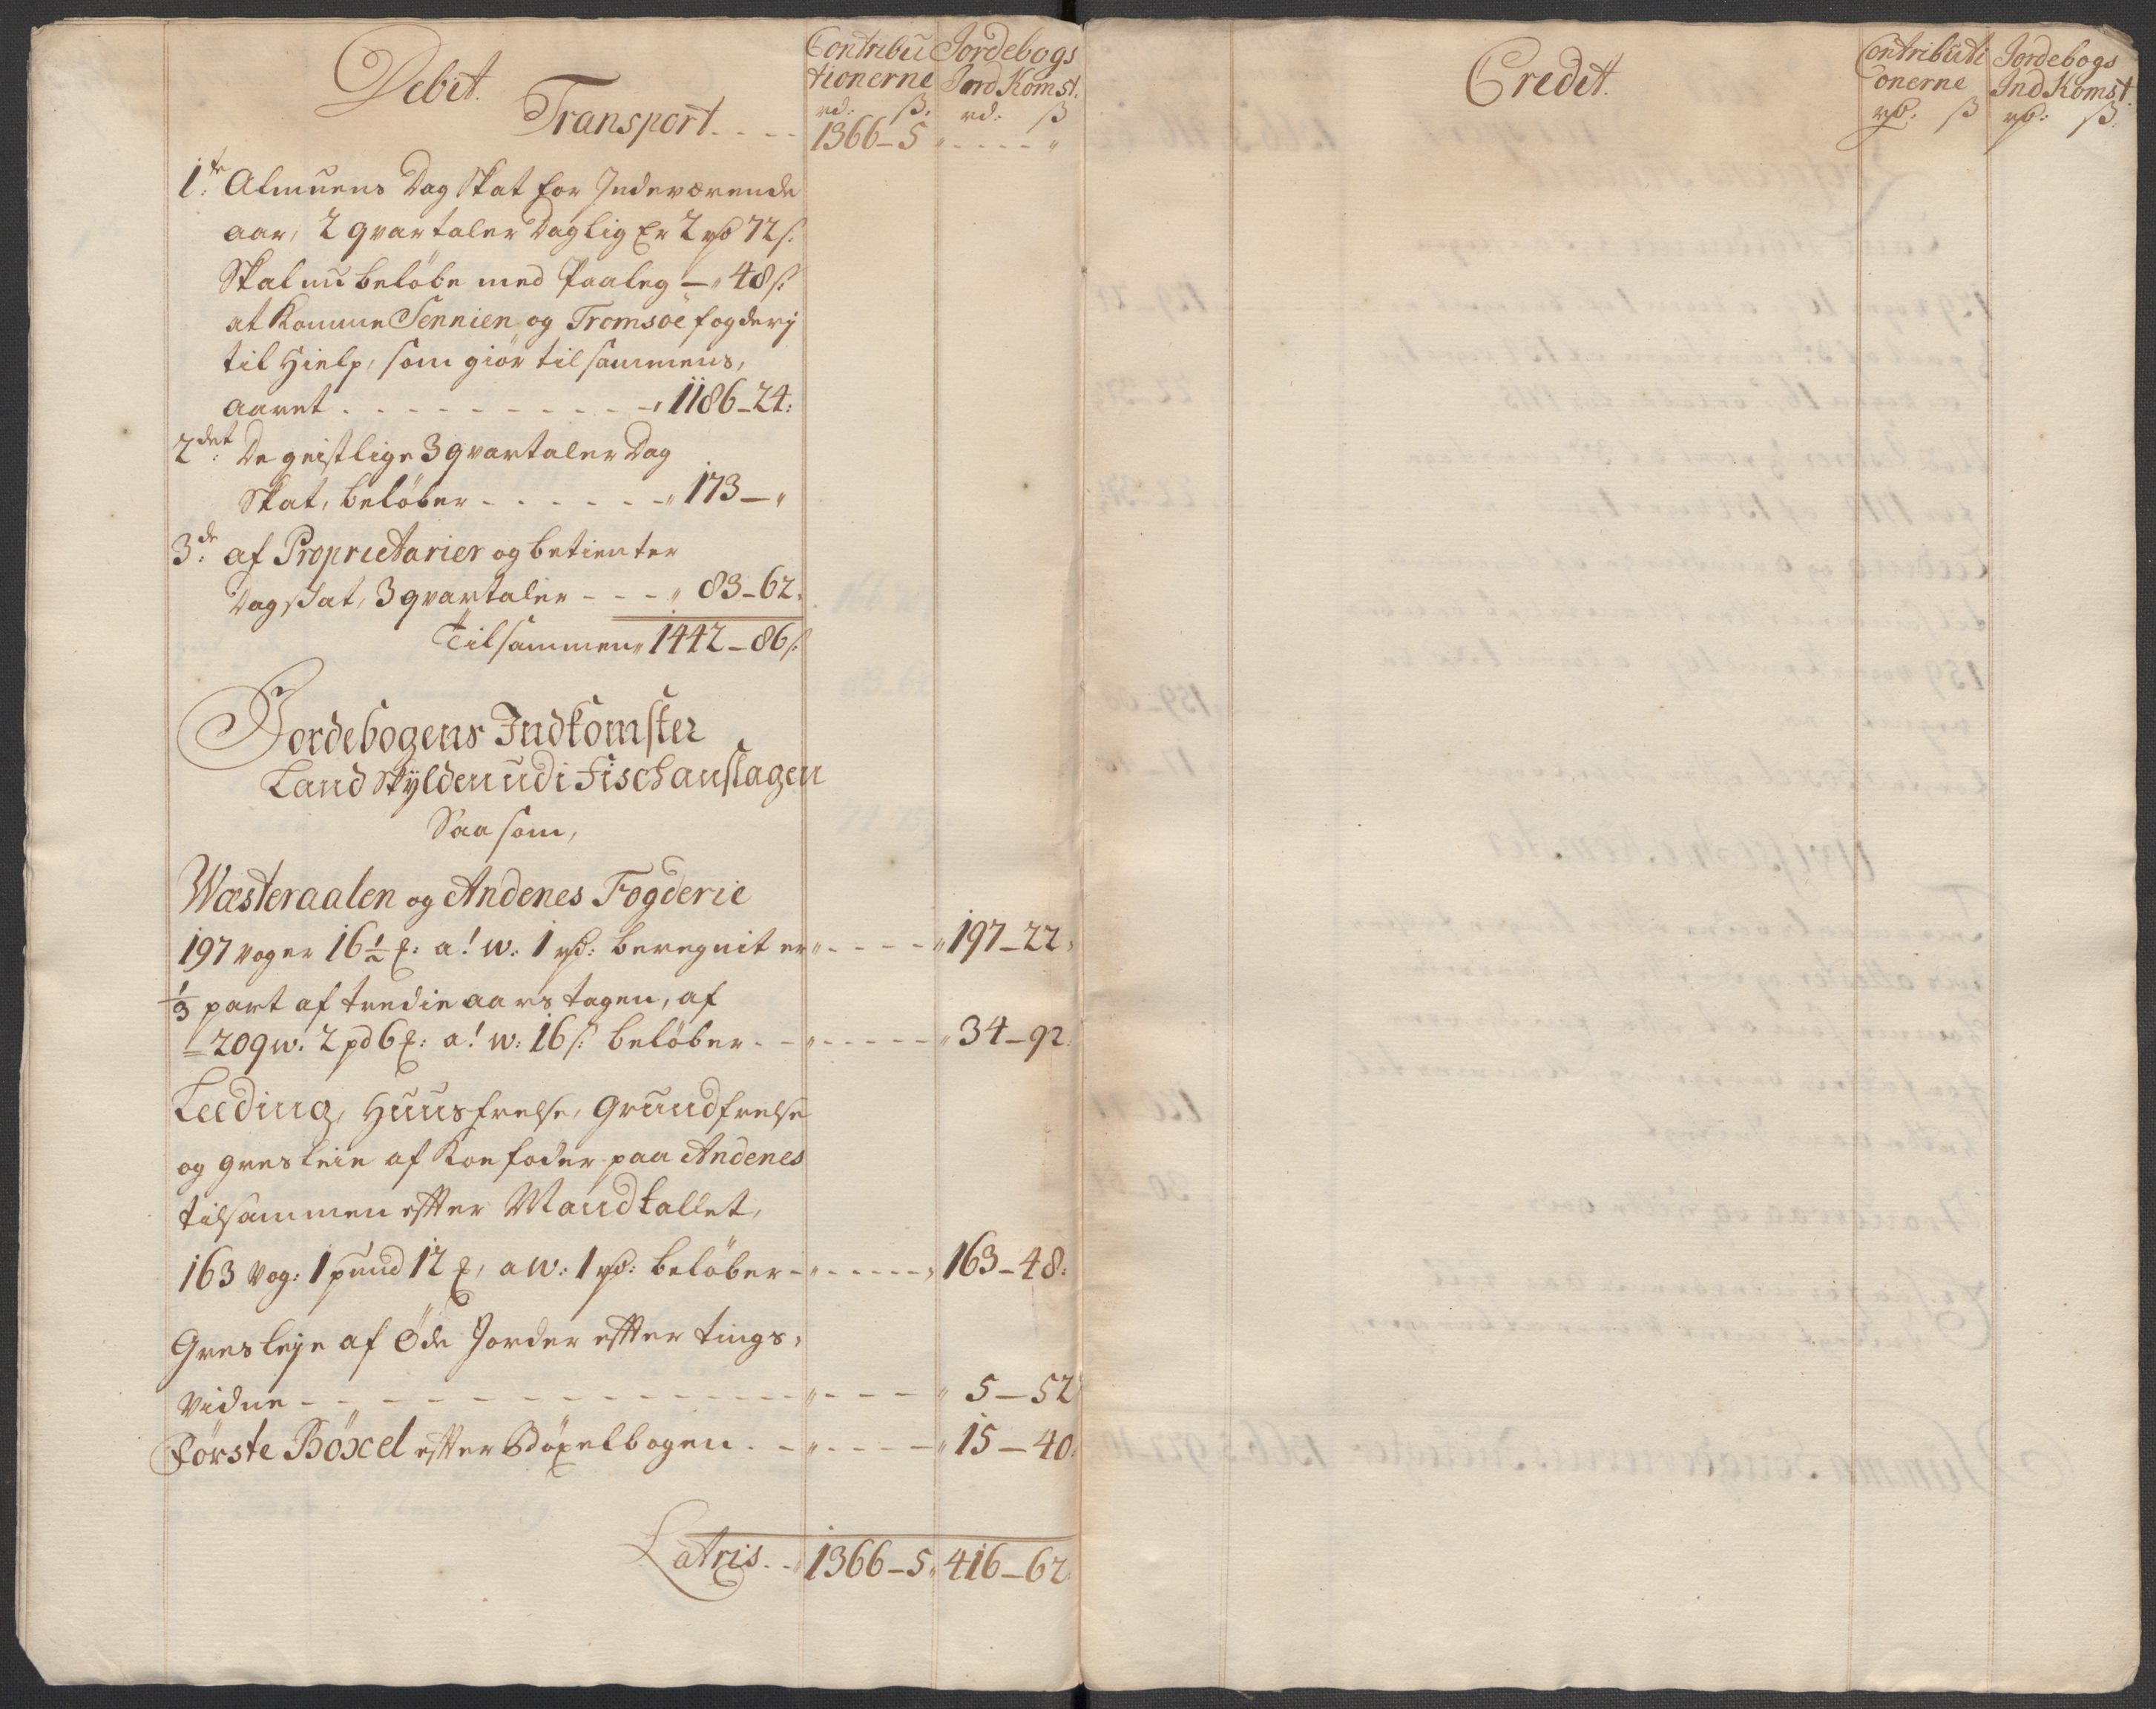 Debit.
Contribu Jordebogs
tionerne Ind Komst.
rd: ß. rd: ß
Transport. . . . 1366 – 5 „ . . . . „
1te: Almuens Dag Skat for Indeværende
aar, 2 qvartaler Daglig Er 2 rd 72 ß.
Skal nu beløbe med Paaleg – „ 48 ß
at Komme Sennien og Tromsøe fogderj
til Hielp, som giør tilsammens,
Aaret . . . . . . . . . . „ 1186 – 24:
2det: De geistlige 3 qvartaler Dag
Skat, beløber . . . . . . „ 173 – „
3de: af Proprietarier og betienter
Dagskat, 3 qvartaler – – – „ 83 – 62.
Tilsammen „ 1442 – 86 ß
Jordebogens Indkomster
Land Skylden udi Fisch anslagen
Saasom,
Wæsteraalen og Andenes Fogderie
197 voger 16 ½ ℔: a! w: 1 rd: beregnit er „ . . . . „ 197 – 22.
⅓ part af tredie aars tagen, af
209 w. 2 pd 6 ℔: a! w: 16 ß beløber . – „ . . . . . „ 34 – 92.
Leeding, Huusfrelse, Grundfrelse
og gresleie af Koefoder paa Andenes
tilsammen effter Mandtallet,
163 Vog: 1 pund 12 ℔, a w: 1 rd: beløber – „ . . . . . „ 163 – 48:
Gresleje af Øde Jorder effter tings,
Vidne – – – – – – – – – – – „ – – – „ 5 – 52
Første Böxel effter Böxelbogen . – „ . – – – „ 15 – 40.
Latris . . „ 1366 – 5 „ 416 – 62.
Credit.
Contributi Jordebogs
onerne Ind Komst.
rd: ß rd: ß.